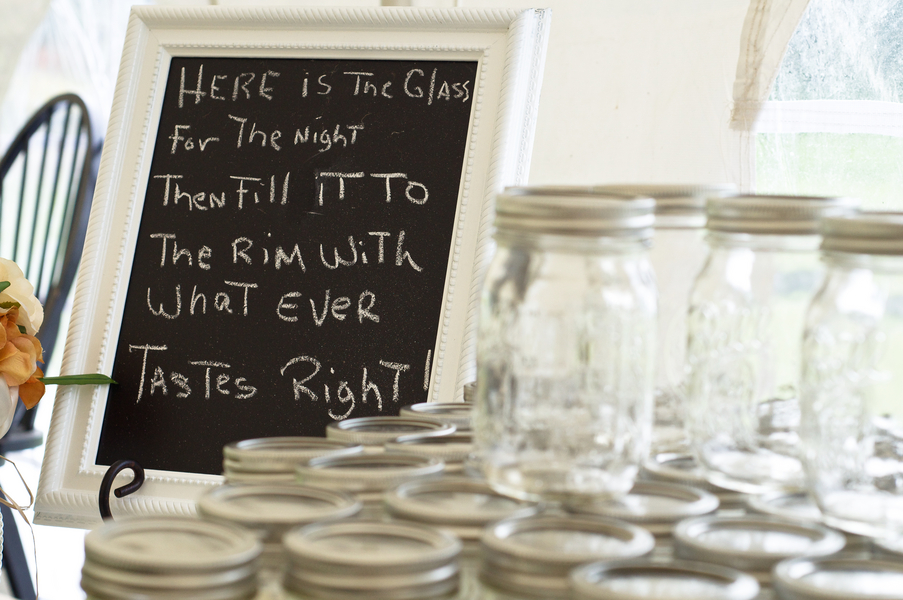 HERE iS The Glass
For The Night
Then Fill IT To
The RiM WiTh
WhaT EVER
TasTes RighT!